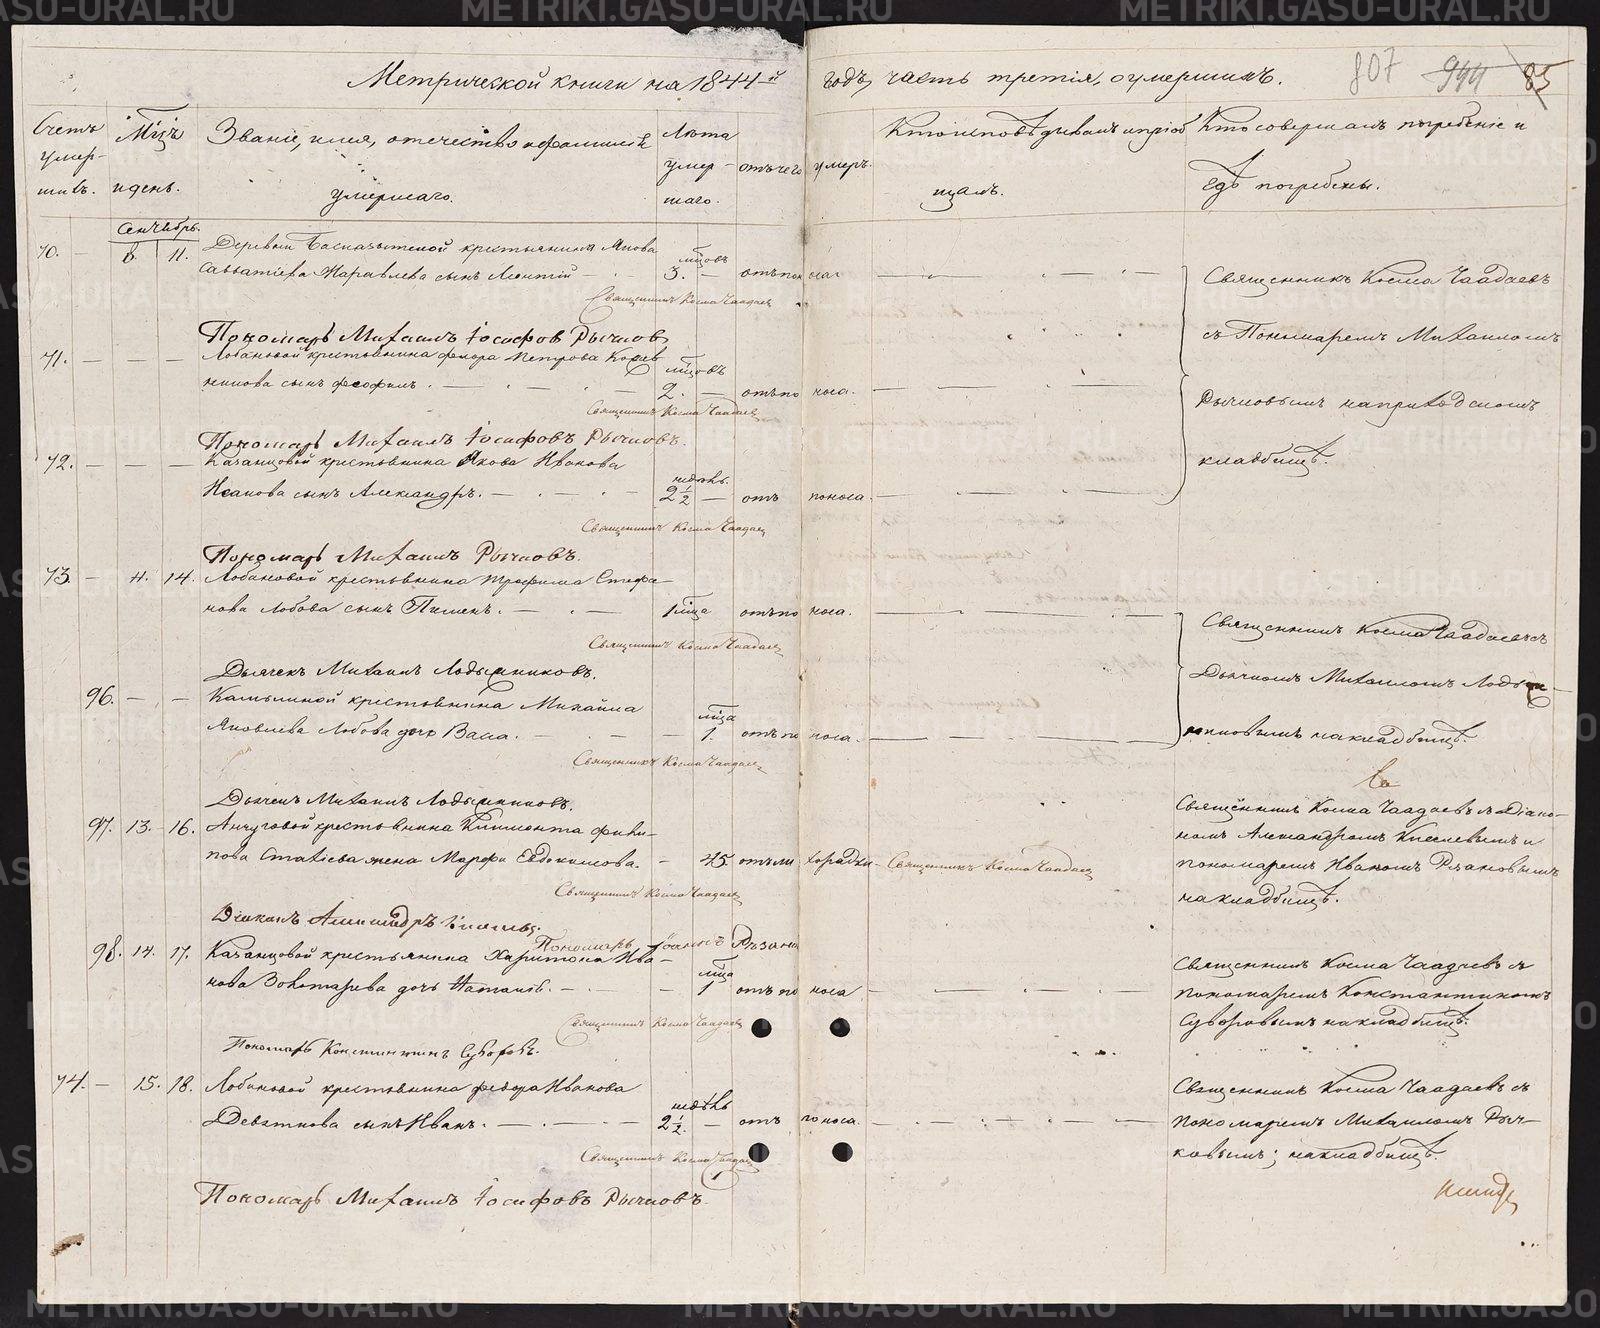 Метрической книги на 1844й годъ, часть третія, о умершихъ.
807 944 85
Счетъ умер-шихъ.
Мѣцъ и день.
Званіе, имя, отечество и фамилія умершаго.
Лѣта умер-шаго.
отъ чего умеръ.
Кто исповѣдывалъ и пріобщалъ.
Кто совершалъ погребеніе и
гдѣ погребены.
Сентябрь.
70. — 8. 11. Деревни крестьянина Якова
Савватіева Журавлева сынъ Леонтій — мѣцовъ 3. — отъ поноса
Священникъ Косма Чаадаевъ
Пономарь Михаилъ Іосифовъ Рычковъ
71. — — — Лобановой крестьянина Федора Петрова Корев
никова сынъ Феофилъ. — мѣцовъ 2. — отъ поноса.
Священникъ Косма Чаадаевъ
Пономарь Михаилъ Іосифовъ Рычковъ.
Священникъ Косма Чаадаевъ
съ Пономаремъ Михаиломъ
Рычковымъ на приходскомъ
кладбищѣ.
72. — — — Казанцовой крестьянина Якова Иванова
Исакова сынъ Александръ. — недѣль 2 1/2 — отъ поноса.
Священникъ Косма Чаадаевъ
Пономарь Михаилъ Рычковъ.
73. — 11. 14. Лобановой крестьянина Трофима Стефа-
нова Лобова сынъ Пименъ. — 1 мѣца отъ поноса.
Священникъ Косма Чаадаевъ
Дьячекъ Михаилъ Лодыжниковъ.
Священникъ Косма Чаадаевъ съ
Дьячкомъ Михаиломъ Лодыж-
никовымъ на кладбищѣ.
96. — — Камышной крестьянина Михаила
Яковлева Лобова дочь Васса. — мѣца 1. отъ поноса.
Священникъ Косма Чаадаевъ
Дьячекъ Михаилъ Лодыжниковъ.
97. 13. 16. Анчуговой крестьянина Климента Фили-
пова Стахіева жена Марфа Евдокимова. — 45 отъ лихорадки
Священникъ Косма Чаадаевъ
Священникъ Косма Чаадаевъ
Діаконъ Александръ Киселевъ.
Пономарь Іоаннъ Рязано
Священникъ Косма Чаадаевъ съ Діако-
номъ Александромъ Киселевымъ и
пономаремъ Иваномъ Рязановымъ
на кладбищѣ.
98. 14. 17. Казанцовой крестьянина Харитона Ива-
нова Золотарева дочь Наталья. — мѣца 1 отъ поноса
Священникъ Косма Чаадаевъ
Пономарь Константинъ Суворовъ.
Священникъ Косма Чаадаевъ съ
пономаремъ Константиномъ
Суворовымъ на кладбищѣ.
74. — 15. 18. Лобановой крестьянина Федора Иванова
Девяткова сынъ Иванъ. — недѣль 2 1/2. — отъ поноса.
Священникъ Косма Чаадаевъ
Пономарь Михаилъ Іосифовъ Рычковъ.
Священникъ Косма Чаадаевъ съ
пономаремъ Михаиломъ Рыч-
ковымъ; на кладбищѣ.
METRIKI.GASO-URAL.RU